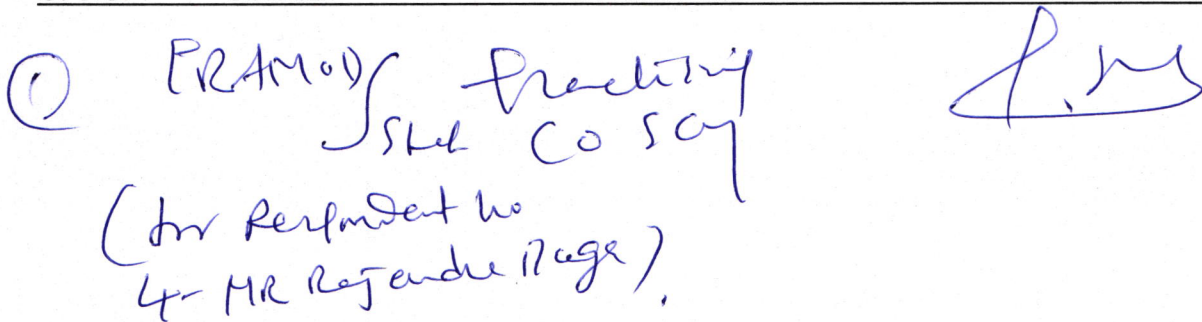 ① PRAMOD Practising
Shah Co Scy
(for Respondent no
4- MR Rajendra